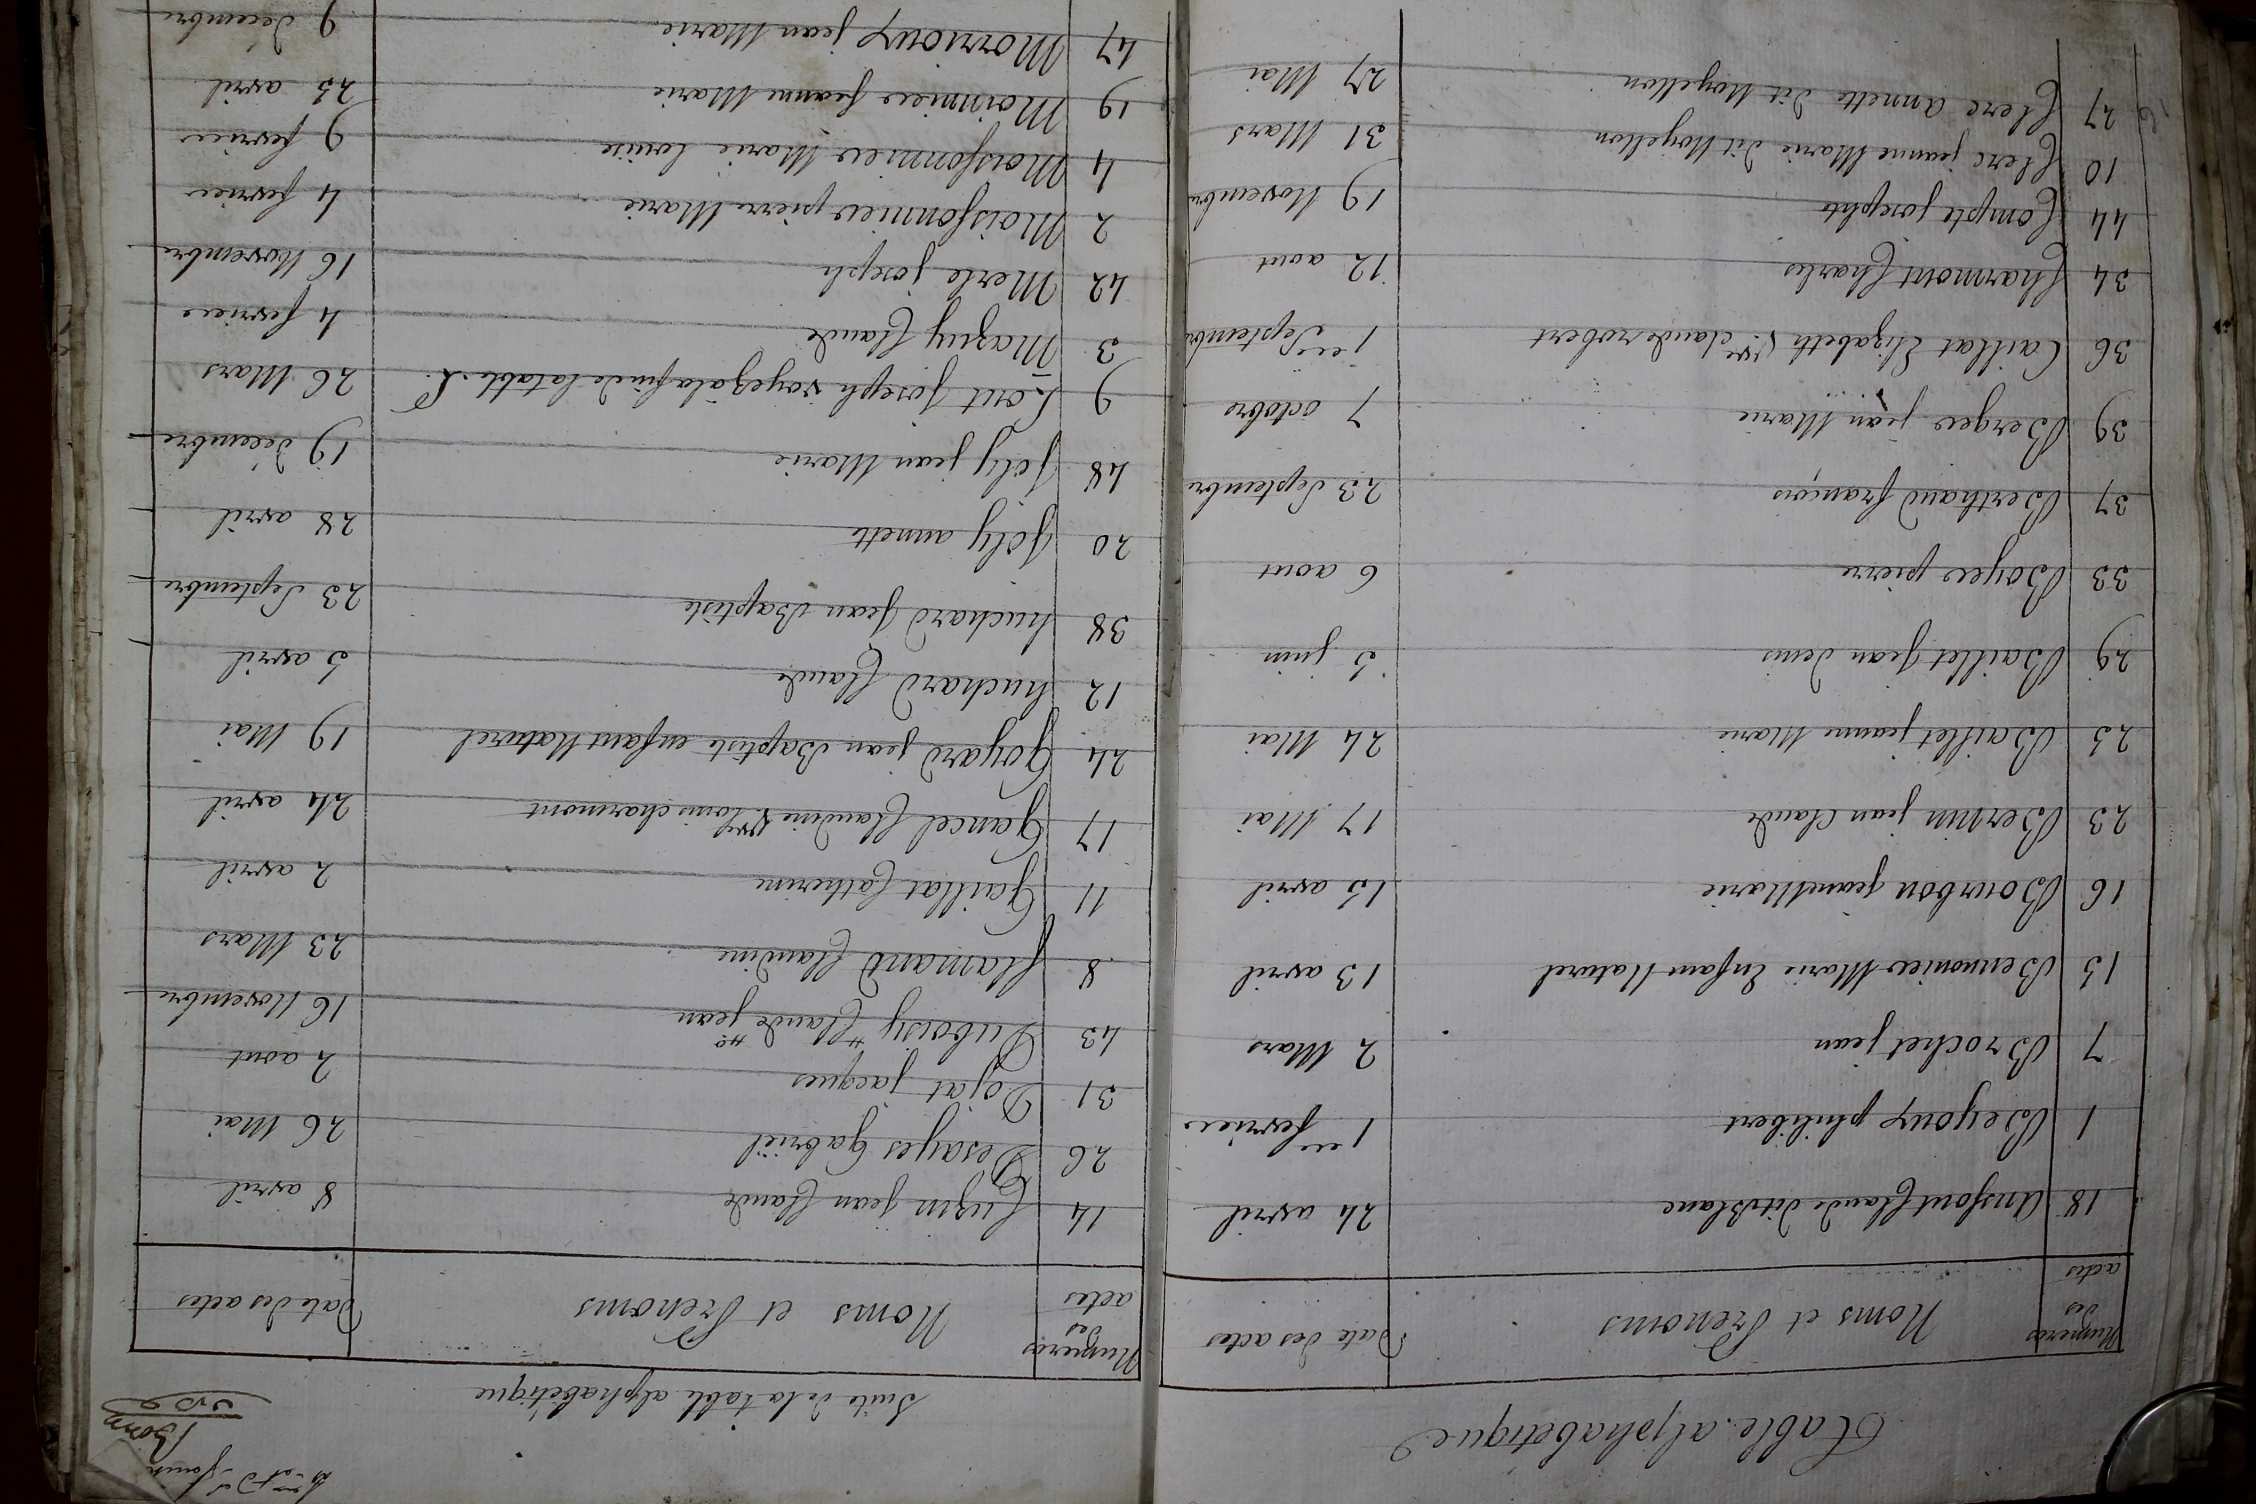 Table alphabetique
Numeros des actes | Noms et Prenoms | Date des actes
18 | Claude dit Blanc | 24 avril
1 | Beyoux philibert | 1er fevrier
7 | Brochet jean | 2 Mars
15 | Bennonier Marie Enfant Naturel | 13 avril
16 | Bourbon jeanne Marie | 15 avril
23 | Bernin jean Claude | 17 Mai
25 | Baillet jeanne Marie | 24 Mai
29 | Baillet jean denis | 5 juin
33 | Boyer pierre | 6 aout
37 | Berthaud françois | 23 Septembre
39 | Berger jean Marie | 7 octobre
36 | Caillat Elizabeth Vve claude robert | 1er Septembre
34 | Charmont Charles | 12 aout
44 | Compte josephte | 19 Novembre
10 | Clerc jeanne Marie dit Noyellon | 31 Mars
27 | Clerc annette dit Noyellon | 27 Mai
Suite de la table alphabétique
Numeros des actes | Noms et Prenoms | Date des actes
14 | Cuzin jean Claude | 8 avril
26 | Desayes Gabriel | 26 Mai
31 | Dojat jacques | 2 aout
43 | Duboisy Claude jean | 16 Novembre
8 | flamand Claudine | 23 Mars
11 | Gaillat Catherine | 2 avril
17 | Gancel Claudine Vve louis charmont | 24 avril
24 | Goyard jean Baptiste enfant Naturel | 19 Mai
12 | huchard Claude | 5 avril
38 | huchard jean Baptiste | 23 Septembre
20 | Joly annette | 28 avril
48 | Joly jean Marie | 19 décembre
9 | joseph voyez a la fin de la table | 26 Mars
3 | Mazuy Claude | 4 fevrier
42 | Merle joseph | 16 Novembre
2 | Moissonnier pierre Marie | 4 fevrier
4 | Moissonnier Marie Louise | 9 fevrier
19 | Moinnier jeanne Marie | 25 avril
47 | Morrioux jean Marie | 9 décembre